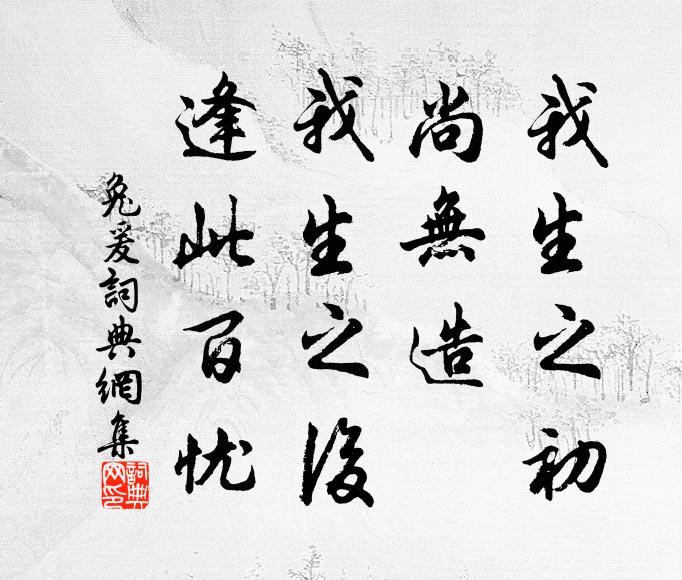 我生之初
尚無造
我生之後
逢此百忧
兔爰詞典網集
詞典
网印